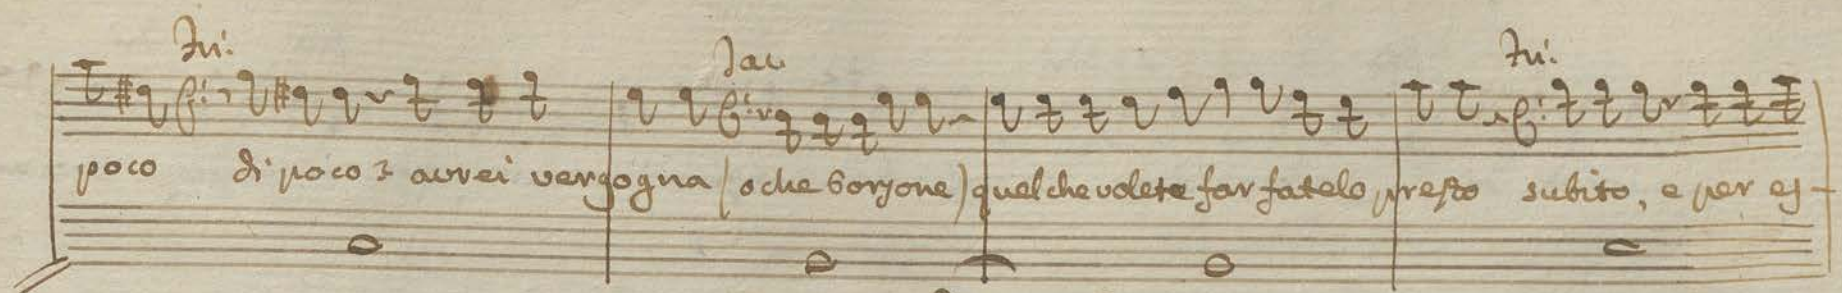 Jac
poco di poco? avrei vergogna (o che borsone) quel che volete far fatelo presto subito, e per es-